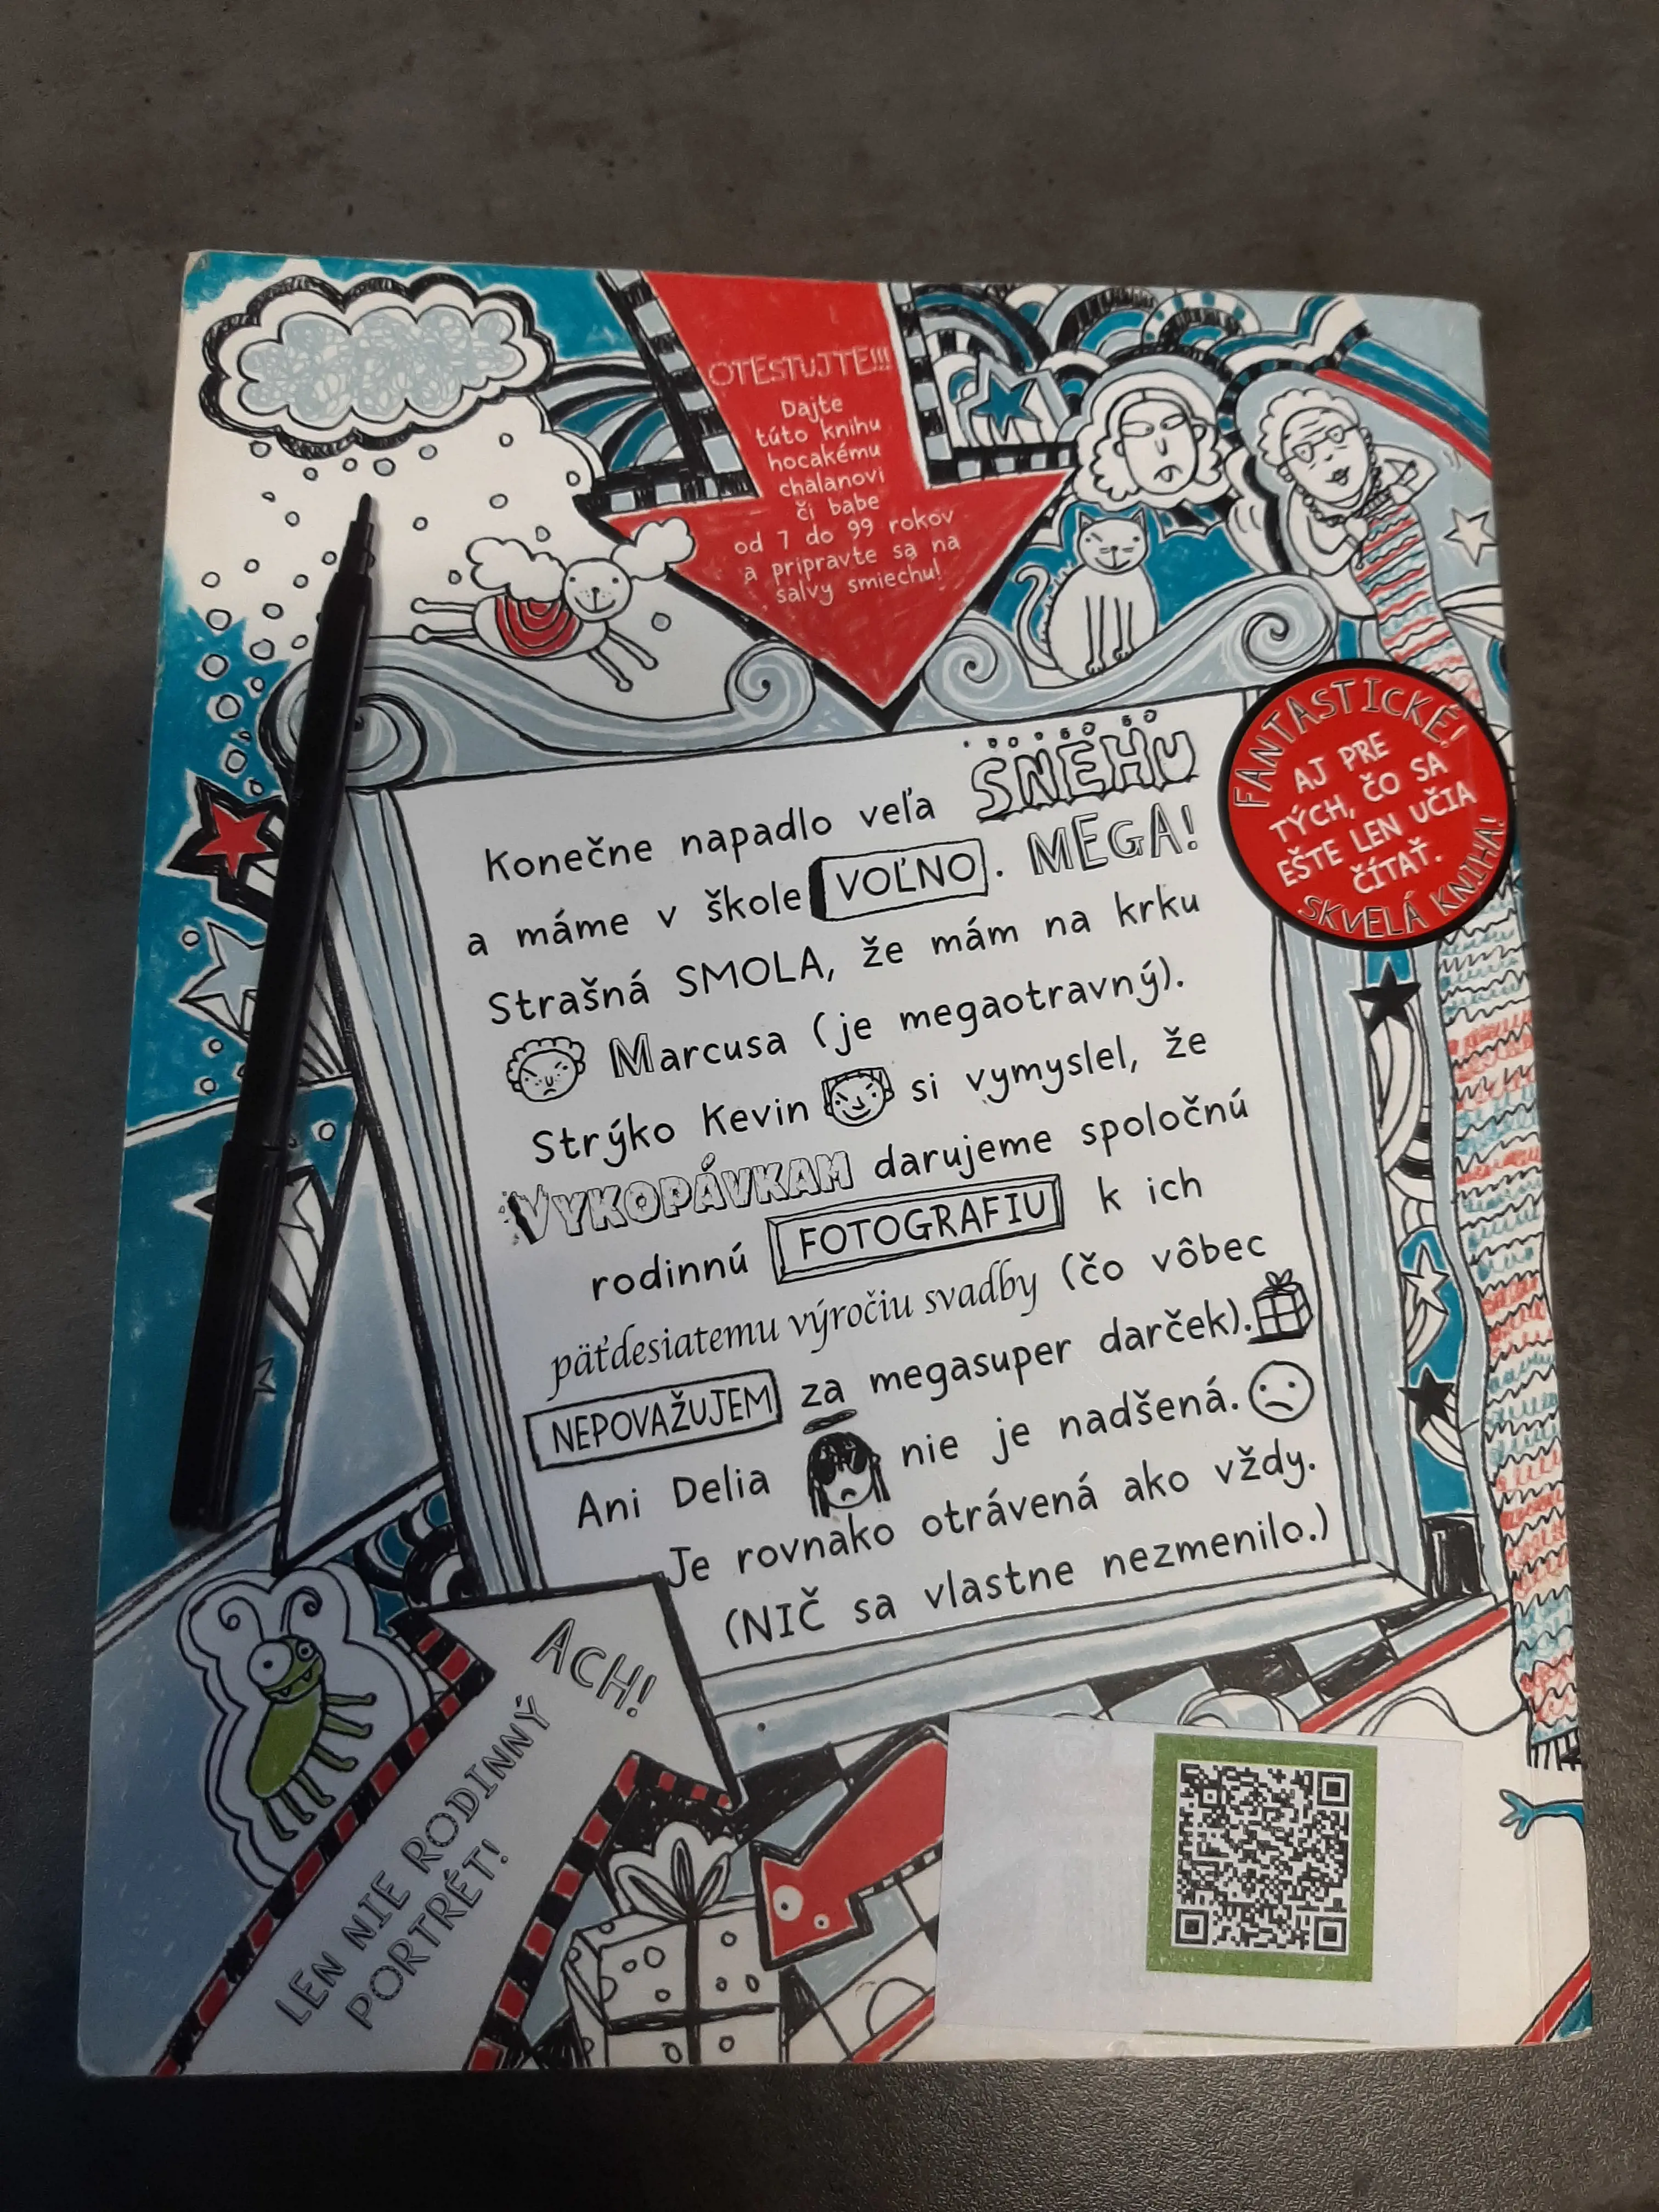 OTESTUJTE!!!
Dajte
túto knihu
hocakému
chalanovi
či babe
od 7 do 99 rokov
a pripravte sa na
salvy smiechu!
FANTASTICKÉ!
AJ PRE
TÝCH, ČO SA
EŠTE LEN UČIA
ČÍTAŤ.
SKVELÁ KNIHA!
Konečne napadlo veľa SNEHU
a máme v škole VOĽNO. MEGA!
Strašná SMOLA, že mám na krku
Marcusa (je megaotravný).
Strýko Kevin si vymyslel, že
VYKOPÁVKAM darujeme spoločnú
rodinnú FOTOGRAFIU k ich
päťdesiatemu výročiu svadby (čo vôbec
NEPOVAŽUJEM za megasuper darček).
Ani Delia nie je nadšená.
Je rovnako otrávená ako vždy.
(NIČ sa vlastne nezmenilo.)
ACH!
LEN NIE RODINNÝ
PORTRÉT!